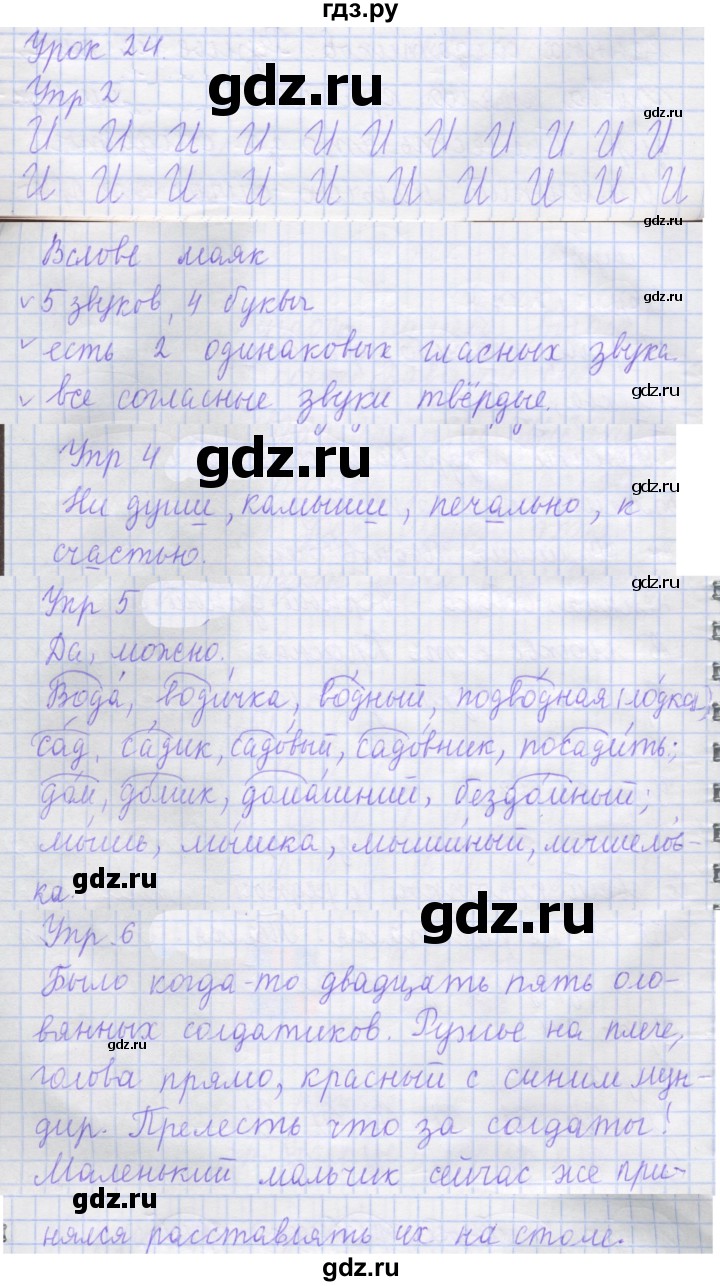 гдз.ру
Урок 24.
Упр 2
gdz.ru
gdz.ru
И И И И И И И И И И И
И И И И И И И И И И
gdz.ru
В слове маяк
✓ 5 звуков, 4 буквы
gdz.ru
✓ есть 2 одинаковых гласных звука.
✓ все согласные звуки твёрдые.
gdz.ru
Упр 4
gdz.ru
gdz.ru
Ни души, камыши, печально, к
счастью.
gdz.ru
Упр 5
Да, можно.
Вода́, води́чка, во́дный, подво́дная (ло́дка),
са́д, са́дик, садо́вый, садо́вник, посади́ть;
до́м, до́мик, дома́шний, бездо́мный;
мы́шь, мы́шка, мыши́ный, мышело́в-
gdz.ru
ка.
gdz.ru
Упр. 6
Было когда-то двадцать пять оло-
вянных солдатиков. Ружье на плече,
gdz.ru
голова прямо, красный с синим мун-
дир. Прелесть что за солдаты!
Маленький мальчик сейчас же при-
gdz.ru
нялся расставлять их на столе.
gdz.ru